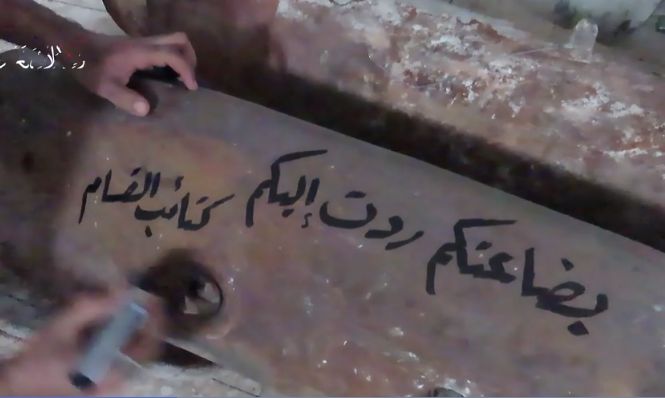 بضاعتكم ردت إليكم كتائب القسام